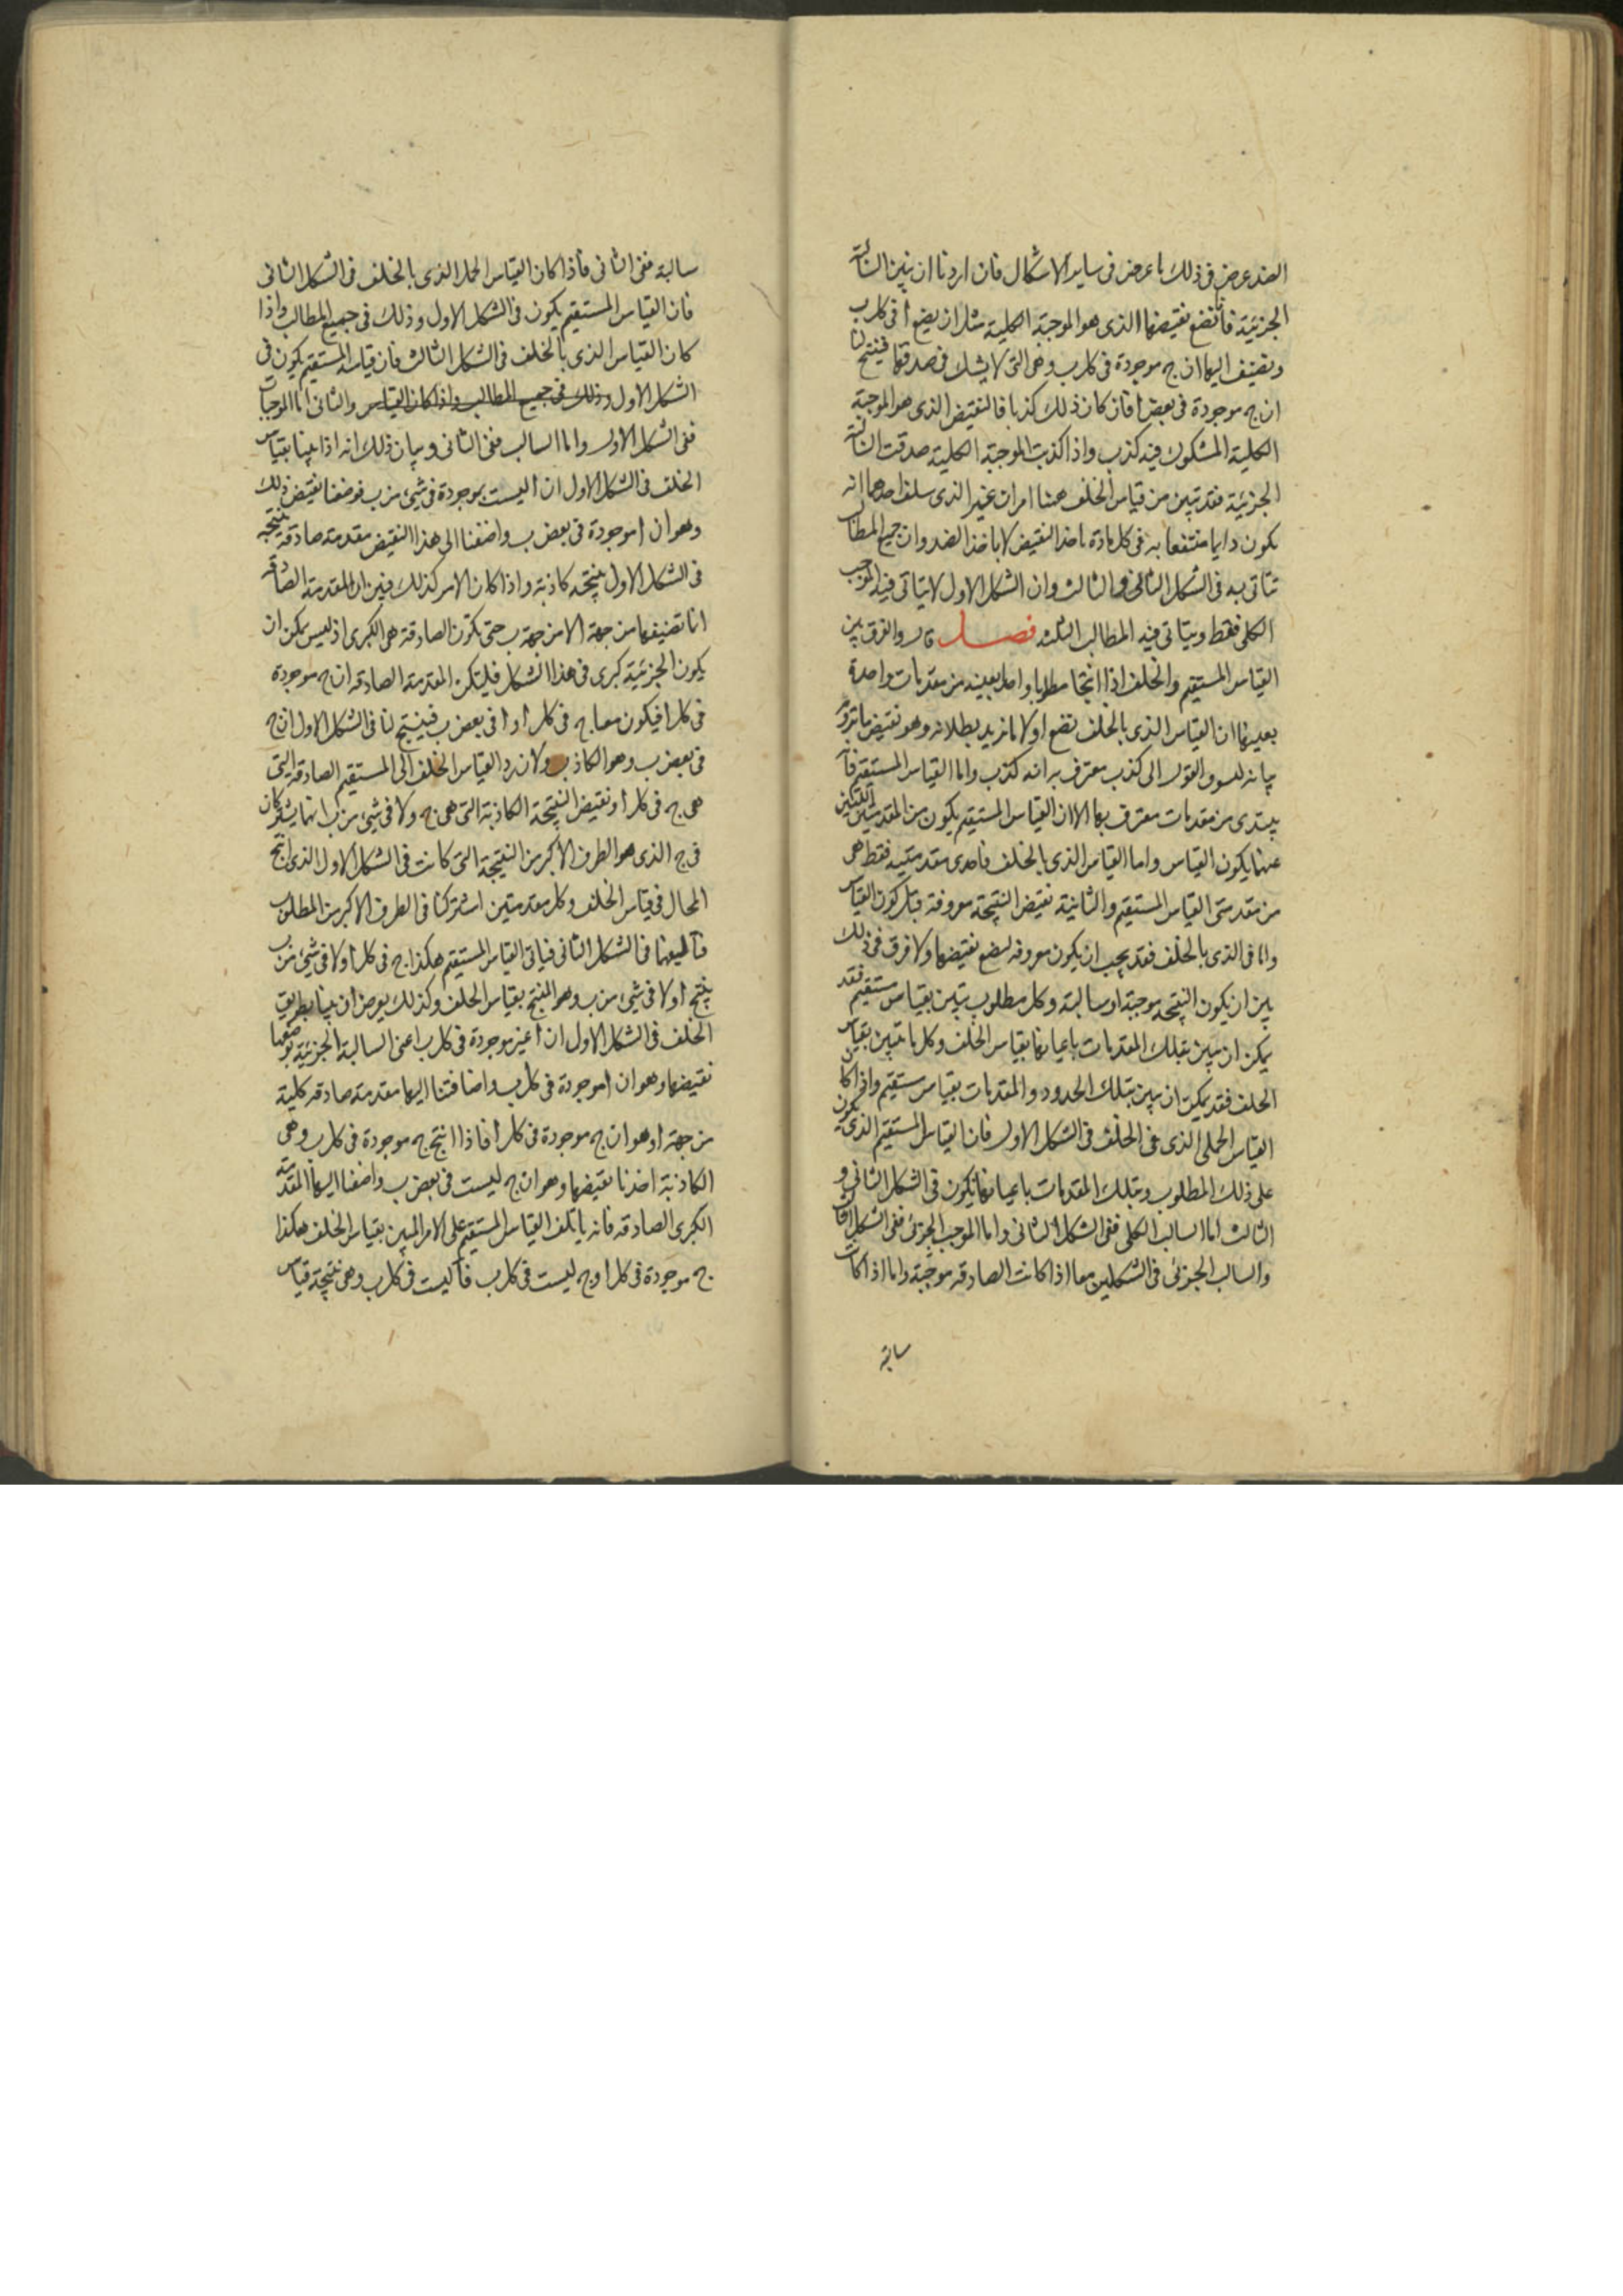 الضد عرض فى ذلك ما عرض فى ساير الاشكال فان اردنا ان نبين السالبة
الجزئية فانا نضع نقيضها الذى هو الموجبة الكلية مثل ان يضع أ فى كل ب
ونضيف اليها ان ج موجودة فى كل ب وهى التى لا يشك فى صدقها فينتج لنا
ان ج موجودة فى بعض أ فان كان ذلك كذبا فالنقيض الذى هو الموجبة
الكلية المشكوك فيه كذب واذا كذبت الموجبة الكلية صدقت السالبة
الجزئية فقد تبين من قياس الخلف هنا امران غير الذى سلف احدهما انه
يكون دايما منتفعا به فى كل مادة باخذ النقيض لا باخذ الضد وان جميع المطالب
تتاتى به فى الشكل الثانى والثالث وان الشكل الاول لا يتاتى فيه الموجب
الكلى فقط ويتاتى فيه المطالب الثلثه فصل قال والفرق بين
القياس المستقيم والخلف اذا انتجا مطلوبا واحدا بعينه من مقدمات واحدة
بعينها ان القياس الذى بالخلف نضع اولا ما نريد بطلانه وهو نقيض ما نروم
بيانه لسوق القول الى كذب معترف به انه كذب واما القياس المستقيم فانه
يبتدى من مقدمات معترف بها الا ان القياس المستقيم يكون من المقدمتين اللتين
عنهما يكون القياس واما القياس الذى بالخلف فاحدى مقدمتيه فقط هى
من مقدمتى القياس المستقيم والثانية نقيض النتيجة معروفة قبل كون القياس
واما فى الذى بالخلف فقد يجب ان يكون معروفه لنضع نقيضها ولا فرق فى ذلك
بين ان يكون النتيجه موجبة او سالبة وكل مطلوب يتبين بقياس مستقيم فقد
يمكن ان يبين بتلك المقدمات باعيانها بقياس الخلف وكل ما تبين بقياس
الخلف فقد يمكن ان يبين بتلك الحدود والمقدمات بقياس مستقيم واذا كان
القياس الحملى الذى فى الخلف فى الشكل الاول فان القياس المستقيم الذى يكون
على ذلك المطلوب وبتلك المقدمات باعيانها يكون فى الشكل الثانى و
الثالث اما السالب الكلى ففى الشكل الثانى واما الموجب الجزئى ففى الشكل الثالث
والسالب الجزئى فى الشكلين معا اذا كانت الصادقه موجبة واما اذا كانت
سالبة
سالبة ففى الثانى فاذا كان القياس الحملى الذى بالخلف فى الشكل الثانى
فان القياس المستقيم يكون فى الشكل الاول وذلك فى جميع المطالب واذا
كان القياس الذى بالخلف فى الشكل الثالث فان قياسه المستقيم يكون فى
الشكل الاول وذلك فى جميع المطالب واذا كان القياس والثانى اما الموجبات
ففى الشكل الاول واما السالب ففى الثانى وبيان ذلك انه اذا بينا بقياس
الخلف فى الشكل الاول ان أ ليست بموجودة فى شئ من ب فوضعنا نقيض ذلك
وهو ان أ موجودة فى بعض ب واضفنا الى هذا النقيض مقدمته صادقه ينتجه
فى الشكل الاول نتيجه كاذبة واذا كان الامر كذلك فبين ان المقدمته الصادقه
انا تضيفها من جهة أ لا من جهة ب حتى تكون الصادقه هى الكبرى اذ ليس يمكن ان
يكون الجزئية كبرى فى هذا الشكل فليكن المقدمته الصادقه ان ج موجودة
فى كل أ فيكون معنا ج فى كل أ و أ فى بعض ب فينتج لنا فى الشكل الاول ان ج
فى بعض ب وهو الكاذب ولان رد القياس الخلف الى المستقيم الصادقه التى
هى ج فى كل أ ونقيض النتيجة الكاذبة التى هى ج ولا فى شئ من ب انما يشتركان
فى ج الذى هو الطرف الاكبر من النتيجة التى كانت فى الشكل الاول الذى انتج
المحال فى قياس الخلف وكل مقدمتين اشتركتا فى الطرف الاكبر من المطلوب
فتأليفهما فى الشكل الثانى فياتى القياس المستقيم هكذا ج فى كل أ ولا فى شئ من ب
ينتج أ ولا فى شئ من ب وهو المنتج بقياس الخلف وكذلك يعرض ان بينا بطريق
الخلف فى الشكل الاول ان أ غير موجودة فى كل ب اعنى السالبة الجزئية بوضعنا
نقيضها وهو ان أ موجودة فى كل ب واضافتنا اليها مقدمته صادقه كلية
من جهة أ وهو ان ج موجودة فى كل أ فاذا انتج ج موجودة فى كل ب وهى
الكاذبة اخذنا نقيضها وهو ان ج ليست فى بعض ب واضفنا اليها المقدمة
الكبرى الصادقه فانه ياتلف القياس المستقيم على الامر المبين بقياس الخلف هكذا
ج موجودة فى كل أ و ج ليست فى كل ب فأ ليست فى كل ب وهى نتيجة قياس